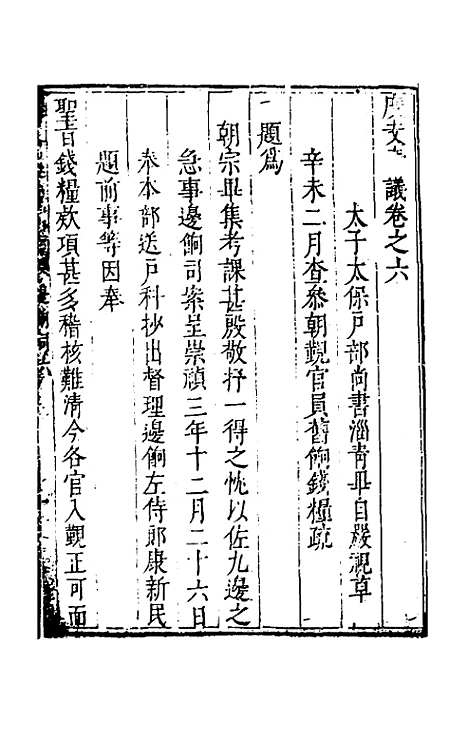 議卷之六
太子太保戶部尚書淄青畢自嚴視草
辛未二月查參朝覲官員舊餉錢糧疏
一題爲
朝宗畢集考課甚殷敬抒一得之忱以佐九邊之
急事邊餉司案呈崇禎三年十二月二十六日
奉本部送戶科抄出督理邊餉左侍郎康新民
題前事等因奉
聖旨錢糧款項甚多稽核難清今各官入覲正可面